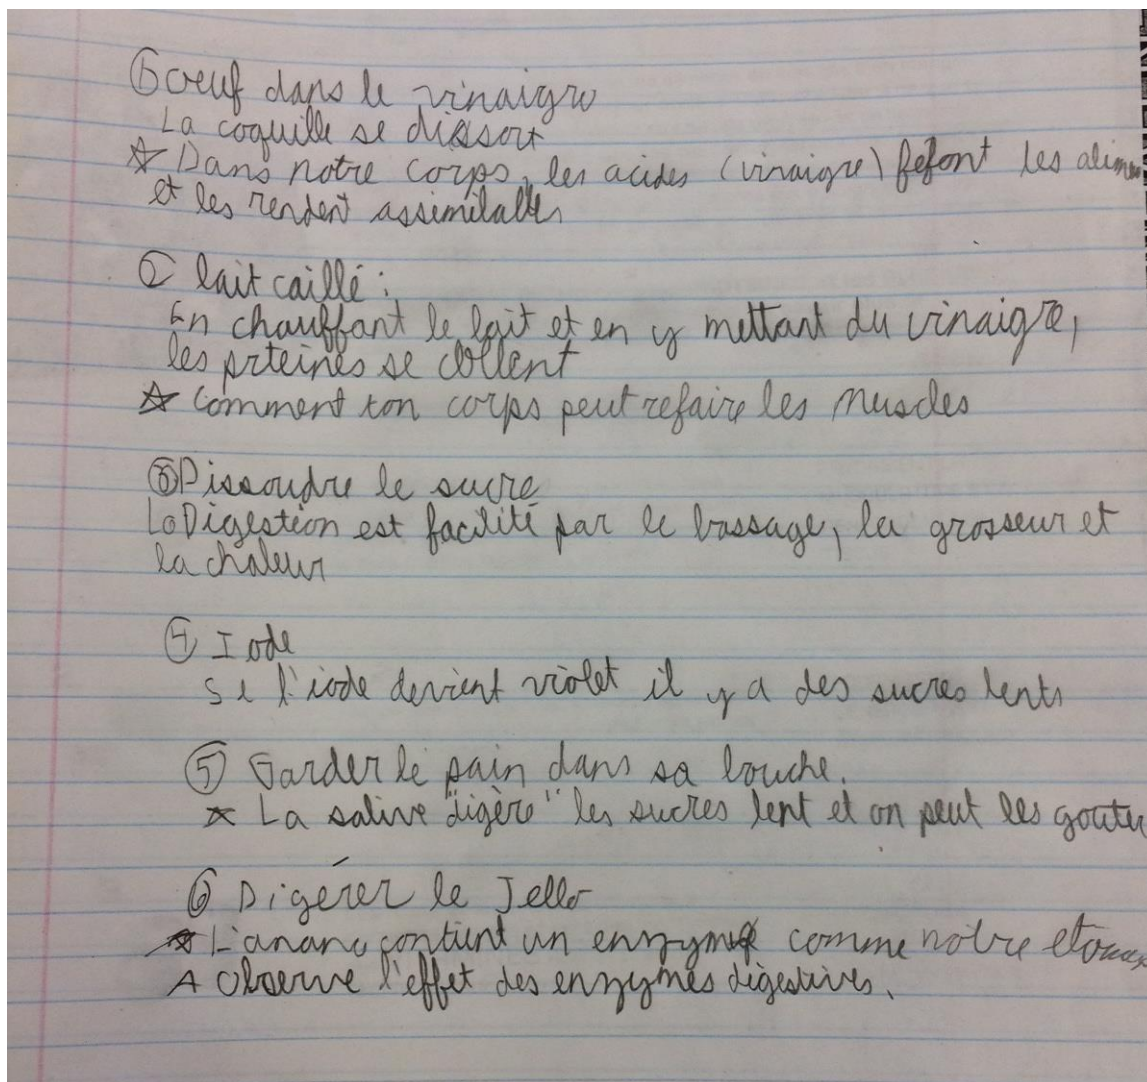 ① oeuf dans le vinaigre
La coquille se dissout
☆ Dans notre corps, les acides (vinaigre) font les alim
et les rendent assimilables
② lait caillé :
En chauffant le lait et en y mettant du vinaigre,
les prteines se collent
☆ Comment ton corps peut refaire les muscles
③ Dissoudre le sucre
La Digestion est facilité par le brassage, la grosseur et
la chaleur
④ Iode
Si l'iode devient violet il y a des sucres lents
⑤ Garder le pain dans sa bouche.
☆ La salive "digère" les sucres lent et on peut les gouter
⑥ Digérer le Jello
☆ L'anana contient un enzyme comme notre estomac
A Observe l'effet des enzymes digestives.